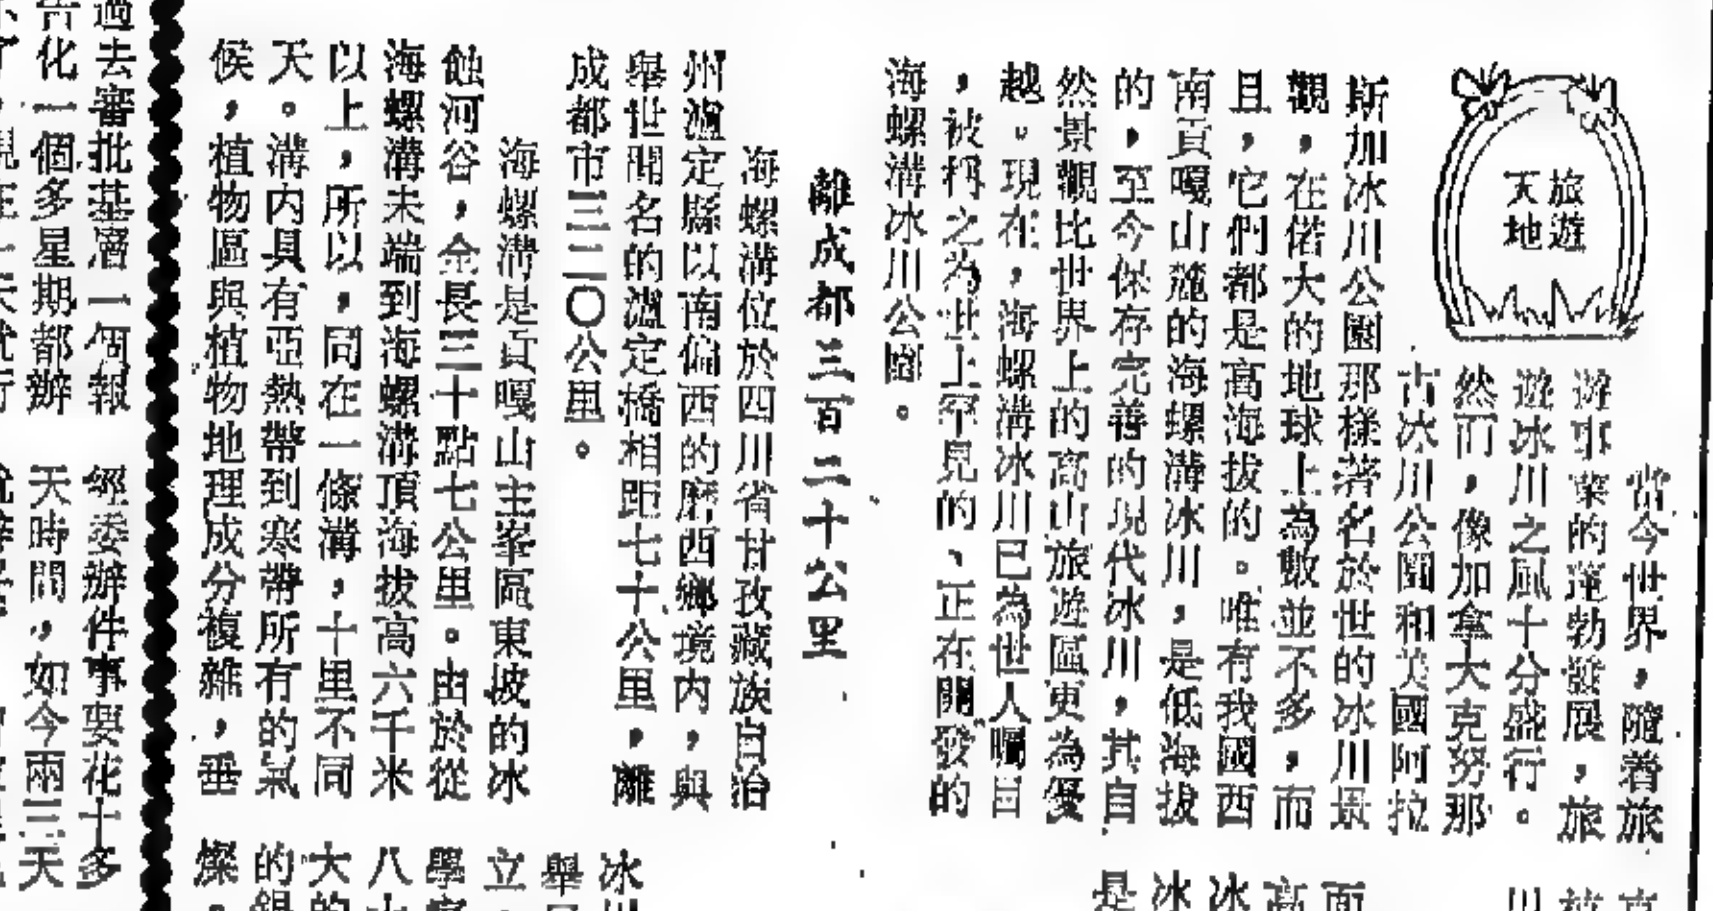 旅遊
天地
當今世界，隨着旅
遊事業的蓬勃發展，旅
遊冰川之風十分盛行。
然而，像加拿大克努那
古冰川公園和美國阿拉
斯加冰川公園那樣著名於世的冰川景
觀，在偌大的地球上為數並不多，而
且，它們都是高海拔的。唯有我國西
南貢嘎山麓的海螺溝冰川，是低海拔
的，至今保存完善的現代冰川，其自
然景觀比世界上的高山旅遊區更為優
越。現在，海螺溝冰川已為世人矚目
，被稱之為世上罕見的、正在開發的
海螺溝冰川公園。
離成都三百二十公里
海螺溝位於四川省甘孜藏族自治
州瀘定縣以南偏西的磨西鄉境内，與
舉世聞名的瀘定橋相距七十公里，離
成都市三二〇公里。
海螺溝是貢嘎山主峯區東坡的冰
蝕河谷，全長三十點七公里。由於從
海螺溝末端到海螺溝頂海拔高六千米
以上，所以，同在一條溝，十里不同
天。溝内具有亞熱帶到寒帶所有的氣
候，植物區與植物地理成分複雜，垂
冰川
舉
立
學
八
大的
的銀
燦
是
冰
冰
高
面
過去審批基層一個報
告化一個多星期都辦
經委辦件事要花十多
天時間，如今兩三天